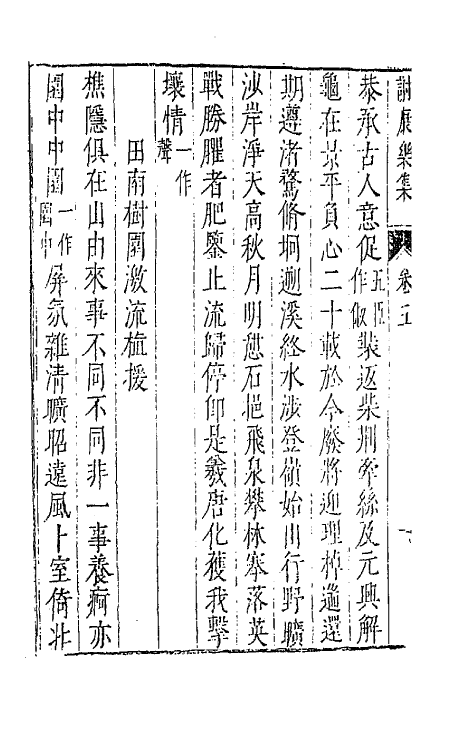 謝康樂集　卷五
恭承古人意促五臣作俶裝返柴荆牽絲及元興解
龜在景平負心二十載於今廢將迎理棹遄還
期遵渚騖脩坰遡溪終水涉登嶺始山行野曠
沙岸淨天高秋月明憩石挹飛泉攀林搴落英
戰勝臞者肥鑒止流歸停即是羲唐化獲我擊
壤情一作聲
田南樹園激流植援
樵隱俱在山由來事不同不同非一事養痾亦
園中中園一作園中屏氛雜清曠昭遠風卜室倚北